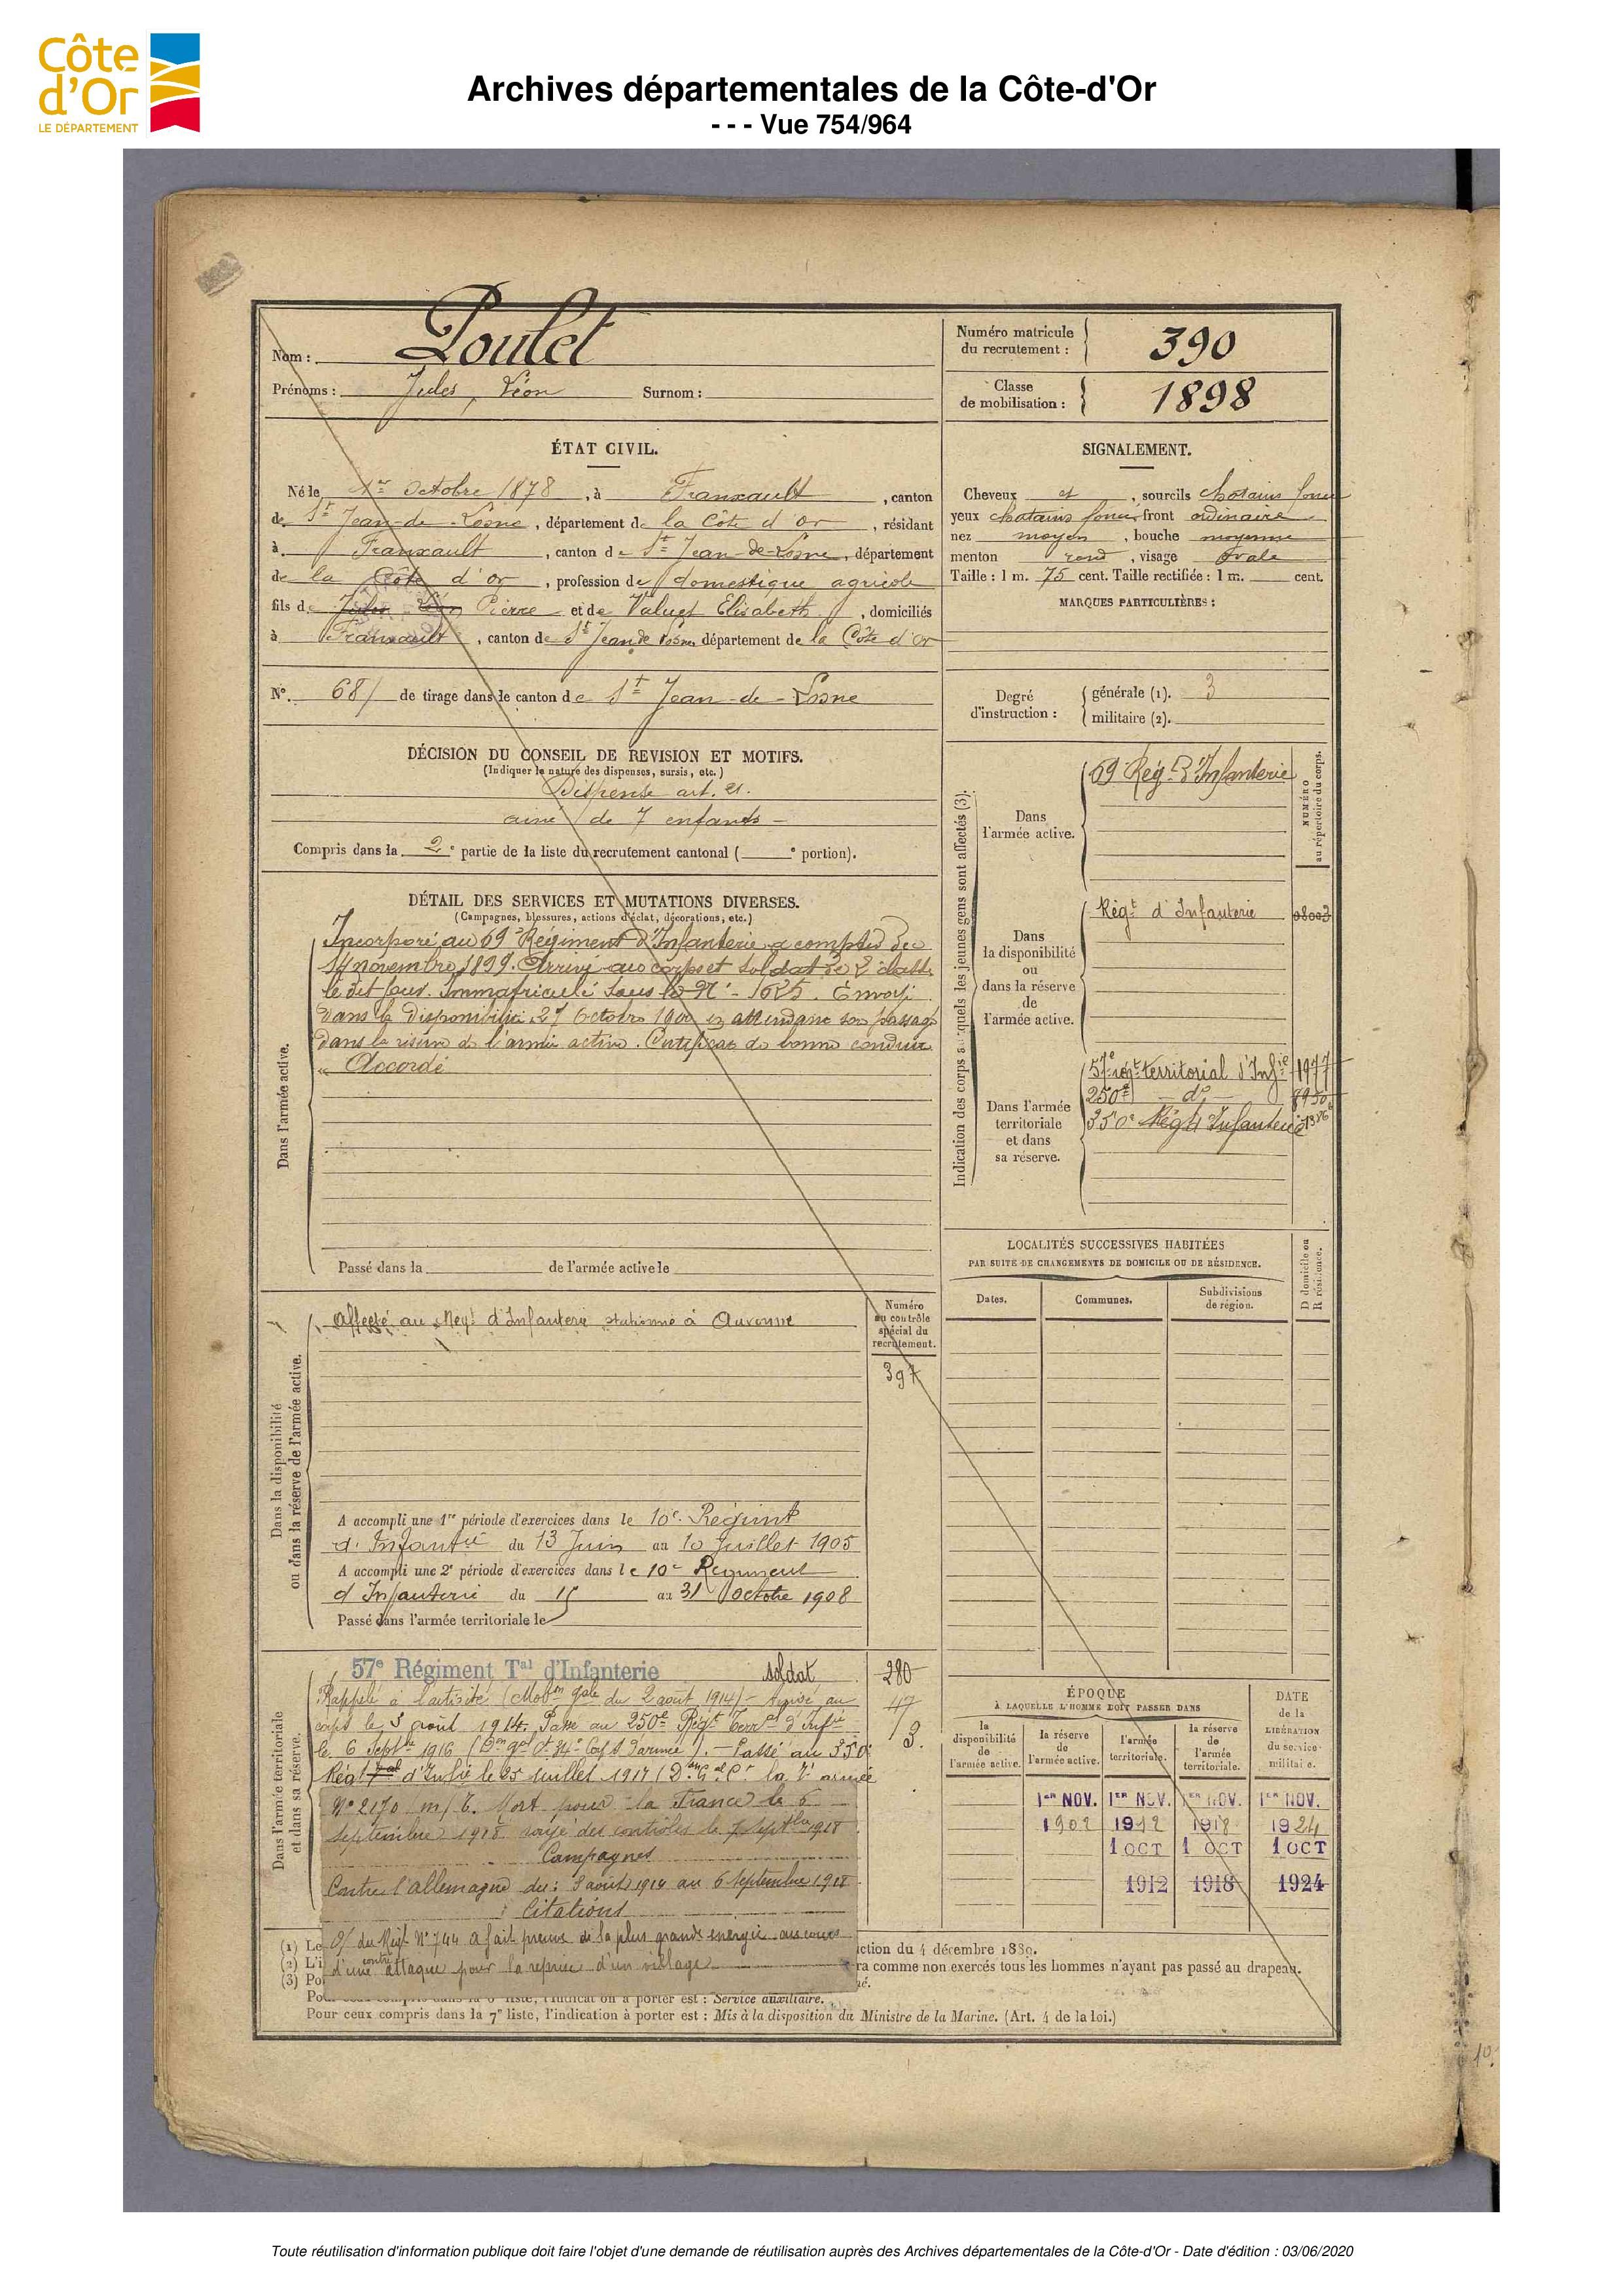 Côte
d'Or
LE DÉPARTEMENT
Archives départementales de la Côte-d'Or
- - - Vue 754/964
Nom : Poulet
Prénoms : Jules, Léon Surnom :
Numéro matricule
du recrutement : 390
Classe
de mobilisation : 1898
ÉTAT CIVIL.
Né le 1er Octobre 1878, à Franxault, canton
de St Jean-de-Losne, département de la Côte d'or, résidant
à Franxault, canton de St Jean-de-Losne, département
de la Côte d'or, profession de domestique agricole
fils de Jules Léon Pierre et de Valuet Elisabeth, domiciliés
à Franxault, canton de St Jean de Losne département de la Côte d'or
N° 68 de tirage dans le canton de St Jean-de-Losne
SIGNALEMENT.
Cheveux et, sourcils chatains foncé
yeux chatains foncé, front ordinaire
nez moyen, bouche moyenne
menton rond, visage ovale
Taille : 1 m. 75 cent. Taille rectifiée : 1 m. cent.
MARQUES PARTICULIÈRES :
Degré
d'instruction :
générale (1). 3
militaire (2).
DÉCISION DU CONSEIL DE REVISION ET MOTIFS.
(Indiquer la nature des dispenses, sursis, etc.)
Dispensé art. 21.
ainé de 7 enfants -
Compris dans la 2e partie de la liste du recrutement cantonal ( e portion).
DÉTAIL DES SERVICES ET MUTATIONS DIVERSES.
(Campagnes, blessures, actions d'éclat, décorations, etc.)
Dans l'armée active.
Incorporé au 69e Régiment d'Infanterie à compter du
14 novembre 1899. Arrivé au corps et soldat de 2e classe
le dit jour. Immatriculé sous le N° - 1625. Envoyé
dans la disponibilité 27 Octobre 1900 en attendant son passage
dans la réserve de l'armée active. Certificat de bonne conduite
"Accordé
Passé dans la de l'armée active le
Indication des corps auxquels les jeunes gens sont affectés (3).
NUMÉRO
au répertoire du corps.
Dans
l'armée active.
69 Rég. d'Infanterie
Dans
la disponibilité
ou
dans la réserve
de
l'armée active.
Régt d'Infanterie 08003
Dans l'armée
territoriale
et dans
sa réserve.
57e régt territorial d'Infie 1977
250e - do -
350e Régt Infanterie
LOCALITÉS SUCCESSIVES HABITÉES
PAR SUITE DE CHANGEMENTS DE DOMICILE OU DE RÉSIDENCE.
Dates.
Communes.
Subdivisions
de région.
D domicile ou
R résidence.
Dans la disponibilité
ou dans la réserve de l'armée active.
Affecté au Regt d'Infanterie stationné à Auxonne
Numéro
au contrôle
spécial du
recrutement.
397
A accompli une 1re période d'exercices dans le 10e Régiment
d'Infantie du 13 Juin au 10 Juillet 1905
A accompli une 2e période d'exercices dans le 10e Régiment
d'Infanterie du 15 au 31 Octobre 1908
Passé dans l'armée territoriale le
Dans l'armée territoriale
et dans sa réserve.
57e Régiment Tal d'Infanterie soldat 280
Rappelé à l'activité (Mobon gale du 2 août 1914) - Arrivé au
corps le 3 août 1914. Passé au 250e Régt Terral d'Infie
le 6 Septbre 1916 (Don gal Ct 34e Corps d'armée). - Passé au 350e
Régt d'Infie le 25 juillet 1917 (Don Gal Ct la 7e armée
N° 2170/m/E. Mort pour la France le 6
Septembre 1918 rayé des contrôles le 7 Septbre 1918
Campagnes
Contre l'allemagne du : 3 août 1914 au 6 Septembre 1918
Citations
O/ du Régt N° 744 a fait preuve de la plus grande energie au cours
d'une contre attaque pour la reprise d'un village
47
3.
ÉPOQUE
À LAQUELLE L'HOMME DOIT PASSER DANS
la
disponibilité
de
l'armée active.
la réserve
de
l'armée active.
l'armée
territoriale.
la réserve
de
l'armée
territoriale.
DATE
de la
LIBÉRATION
du service
militaire.
1er NOV. 1ER NOV. 1ER NOV. 1ER NOV.
1902 1912 1918 1924
1 OCT 1 OCT 1 OCT
1912 1918 1924
(1) Le
(2) L'i
(3) Po
ction du 4 décembre 1889.
ra comme non exercés tous les hommes n'ayant pas passé au drapeau.
é.
Pour ceux compris dans la 6e liste, l'indication à porter est : Service auxiliaire.
Pour ceux compris dans la 7e liste, l'indication à porter est : Mis à la disposition du Ministre de la Marine. (Art. 4 de la loi.)
Toute réutilisation d'information publique doit faire l'objet d'une demande de réutilisation auprès des Archives départementales de la Côte-d'Or - Date d'édition : 03/06/2020